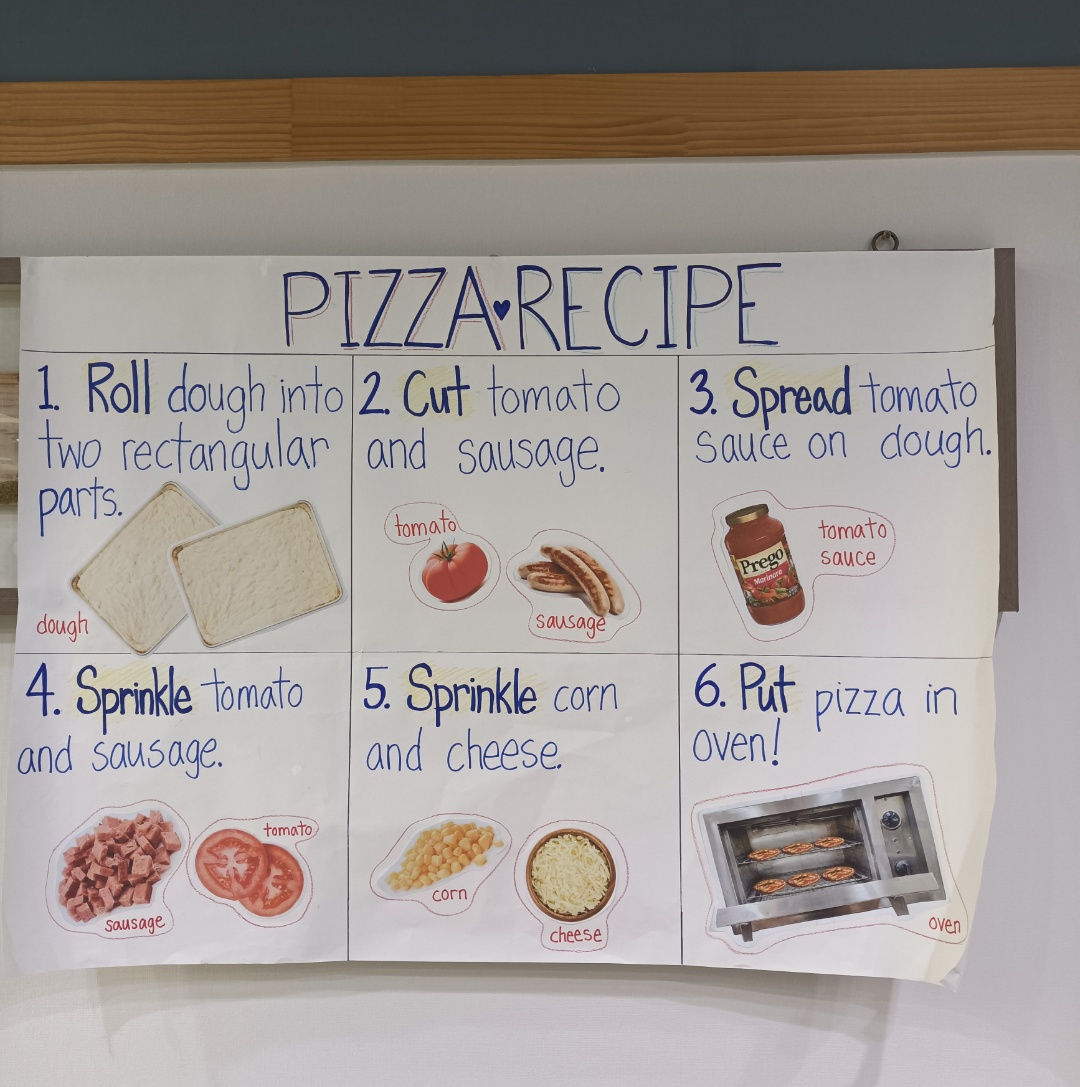 PIZZA♥RECIPE
1. Roll dough into
two rectangular
parts.
dough
2. Cut tomato
and sausage.
tomato
sausage
3. Spread tomato
sauce on dough.
Prego
Marinara
tomato
sauce
4. Sprinkle tomato
and sausage.
tomato
sausage
5. Sprinkle corn
and cheese.
corn
cheese
6. Put pizza in
oven!
oven